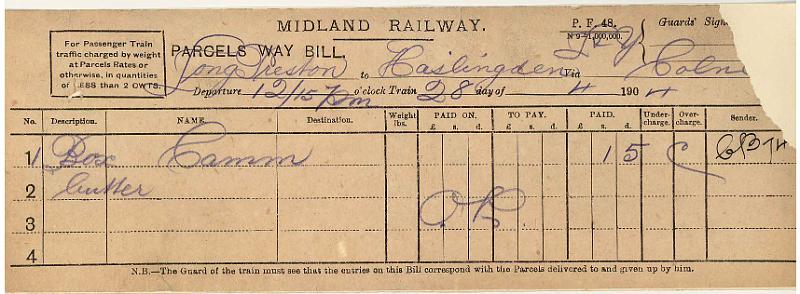 MIDLAND RAILWAY.
P. F. 48.
N 9-1,000,000.
Guards' Sign
For Passenger Train
traffic charged by weight
at Parcels Rates or
otherwise, in quantities
of LESS than 2 CWTS.
PARCELS WAY BILL,
L&Y
Long Preston to Haslingden Via Colne
Departure 12/15 pm o'clock Train 28 day of 4 1904
No. Description. NAME. Destination. Weight lbs. PAID ON. £ s. d. TO PAY. £ s. d. PAID. £ s. d. Under-charge. Over-charge. Sender.
1 1 Box Camm 1 5 C
2 butter
3 O.R
4
N.B.—The Guard of the train must see that the entries on this Bill correspond with the Parcels delivered to and given up by him.